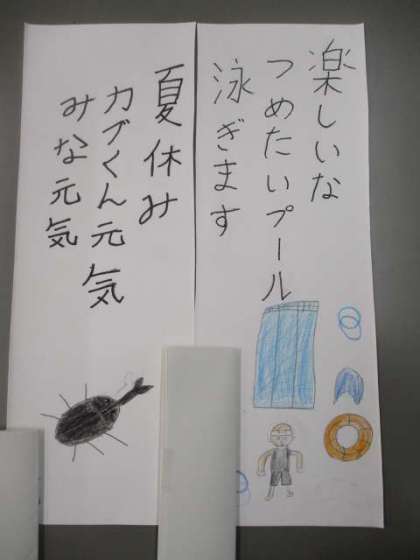 楽しいな
つめたいプール
泳ぎます
夏休み
カブくん元気
みな元気